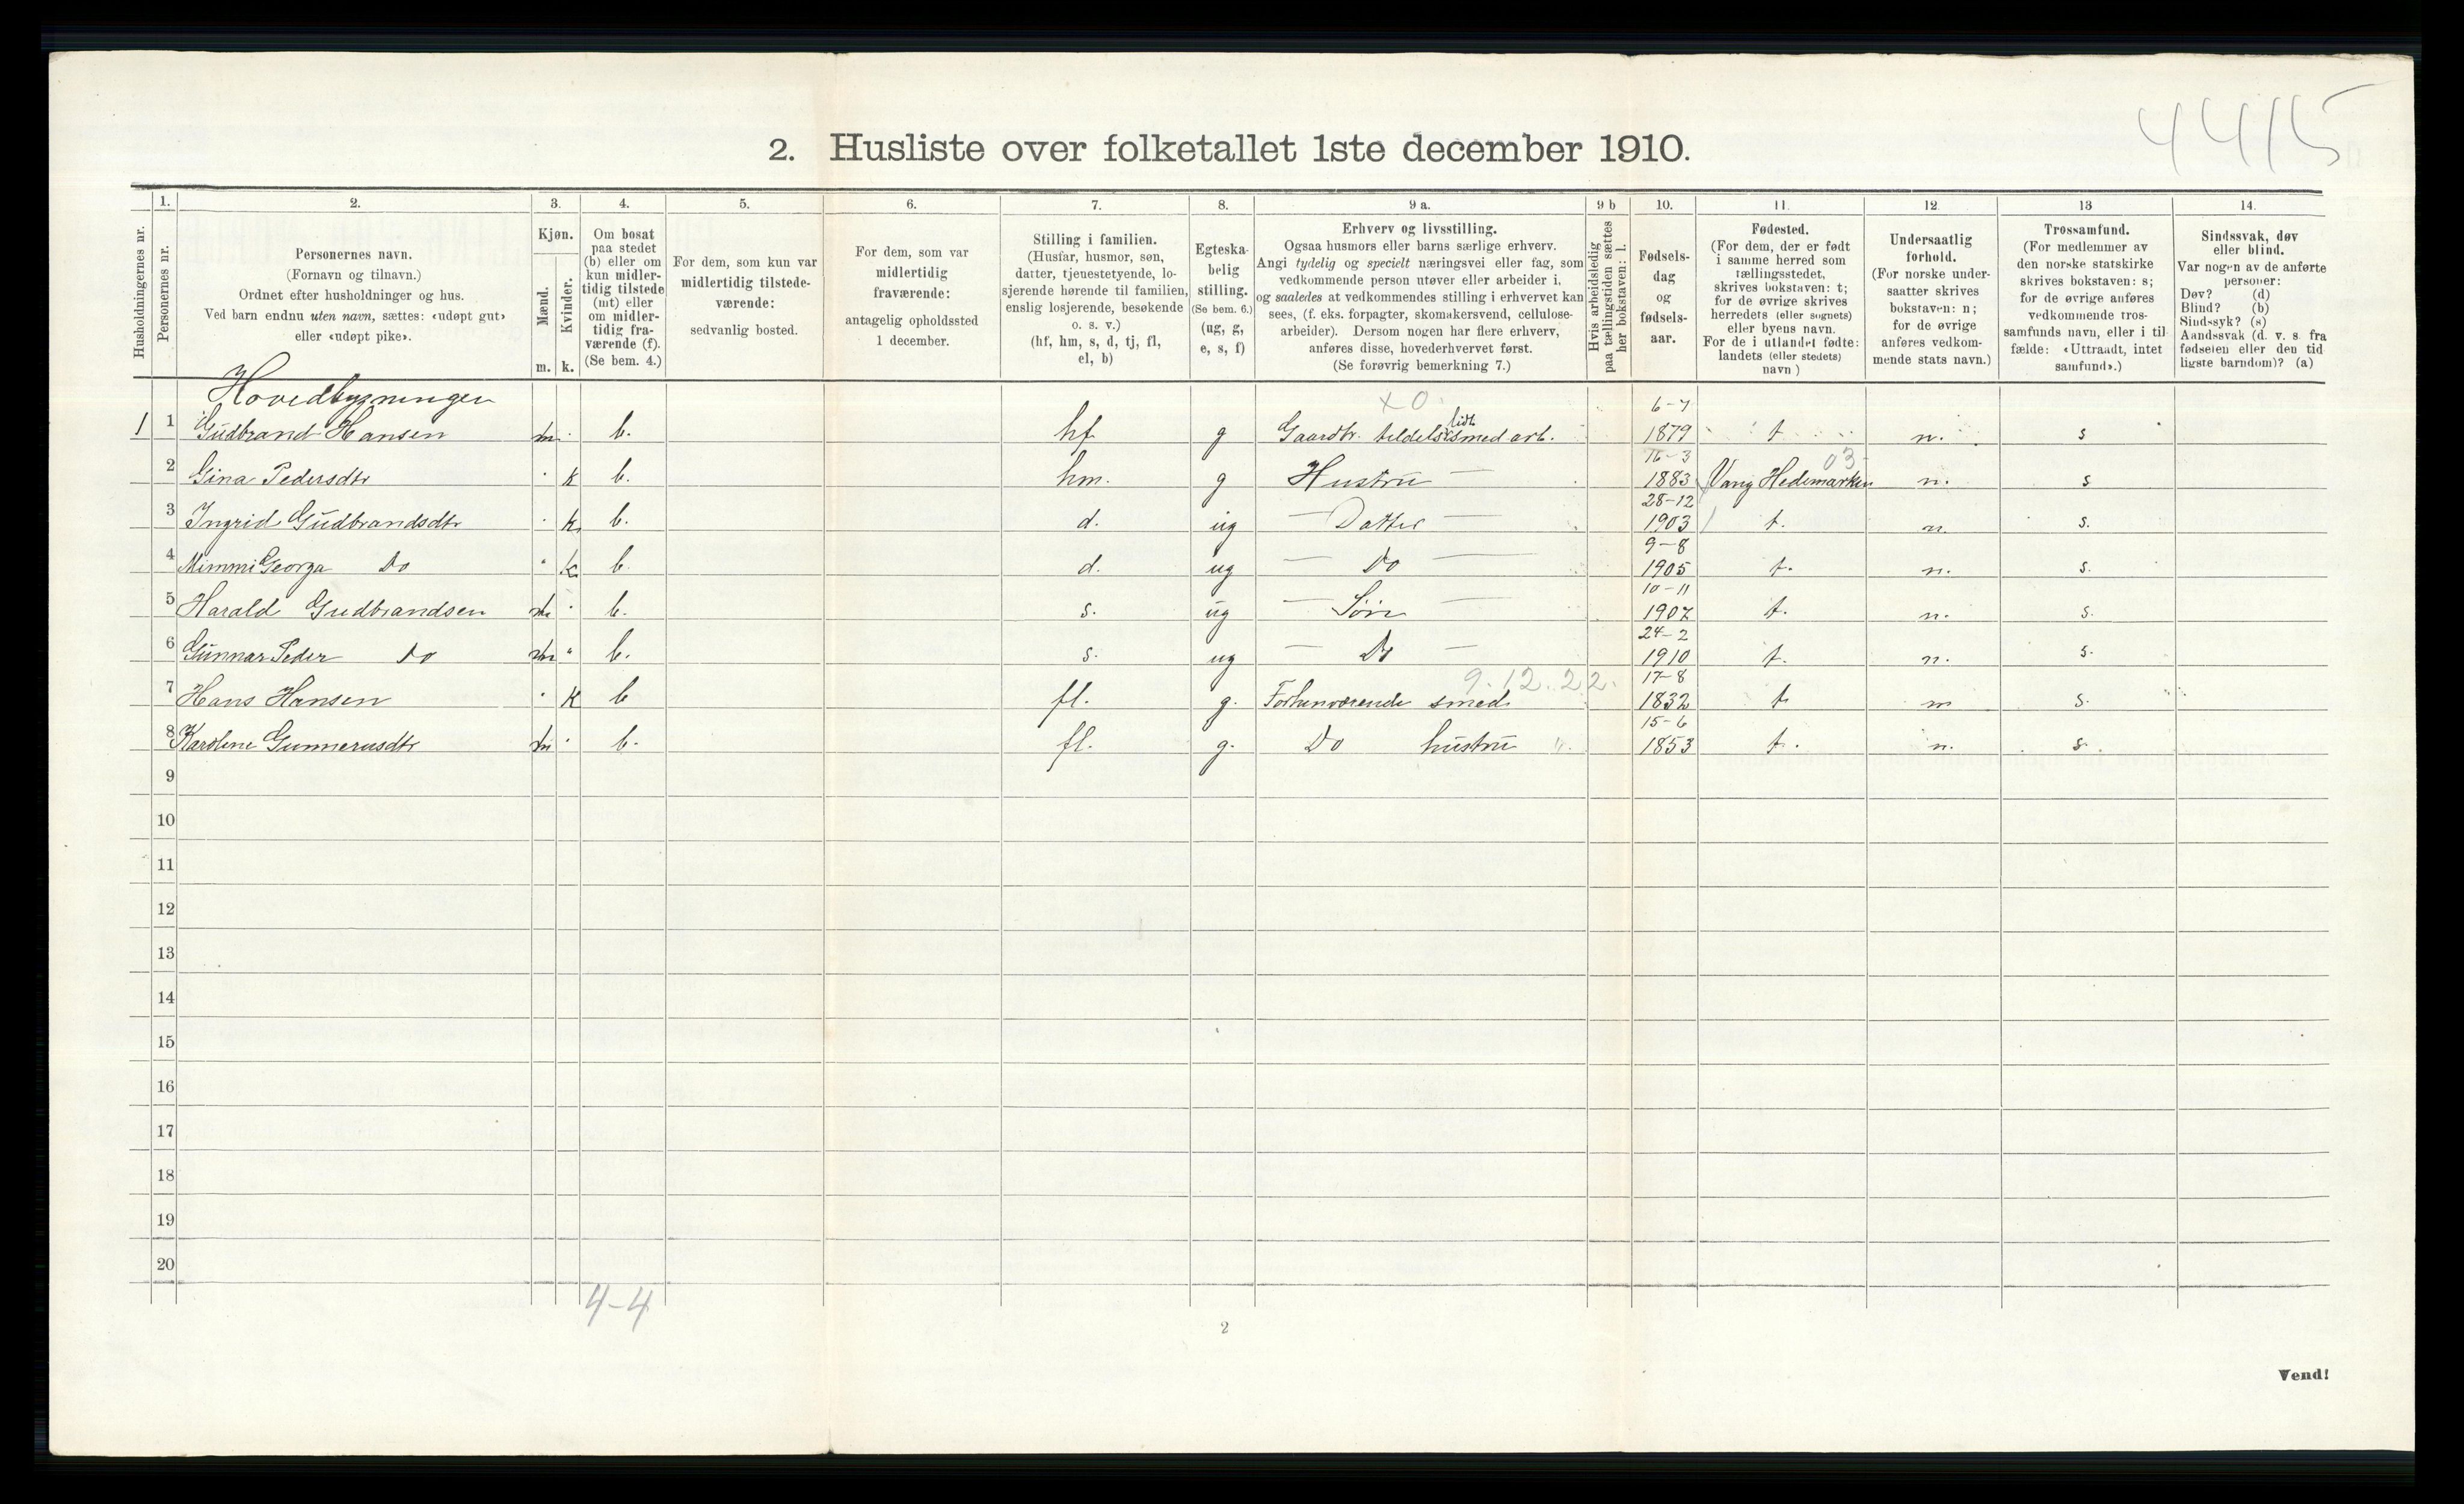 4415
2. Husliste over folketallet 1ste december 1910.
Husholdningernes nr.
1. Personernes nr.
2. Personernes navn.
(Fornavn og tilnavn.)
Ordnet efter husholdninger og hus.
Ved barn endnu uten navn, sættes: «udøpt gut»
eller «udøpt pike».
3. Kjøn.
Mænd. Kvinder.
m. k.
4. Om bosat
paa stedet
(b) eller om
kun midler-
tidig tilstede
(mt) eller
om midler-
tidig fra-
værende (f).
(Se bem. 4.)
5. For dem, som kun var
midlertidig tilstede-
værende:
sedvanlig bosted.
6. For dem, som var
midlertidig
fraværende:
antagelig opholdssted
1 december.
7. Stilling i familien.
(Husfar, husmor, søn,
datter, tjenestetyende, lo-
sjerende hørende til familien,
enslig losjerende, besøkende
o. s. v.)
(hf, hm, s, d, tj, fl,
el, b)
8. Egteska-
belig
stilling.
(Se bem. 6.)
(ug, g,
e, s, f)
9 a. Erhverv og livsstilling.
Ogsaa husmors eller barns særlige erhverv.
Angi tydelig og specielt næringsvei eller fag, som
vedkommende person utøver eller arbeider i,
og saaledes at vedkommendes stilling i erhvervet kan
sees, (f. eks. forpagter, skomakersvend, cellulose-
arbeider). Dersom nogen har flere erhverv,
anføres disse, hovederhvervet først.
(Se forøvrig bemerkning 7.)
9 b Hvis arbeidsledig
paa tællingstiden sættes
her bokstaven: l.
10. Fødsels-
dag
og
fødsels-
aar.
11. Fødested.
(For dem, der er født
i samme herred som
tællingsstedet,
skrives bokstaven: t;
for de øvrige skrives
herredets (eller sognets)
eller byens navn.
For de i utlandet fødte:
landets (eller stedets)
navn)
12. Undersaatlig
forhold.
(For norske under-
saatter skrives
bokstaven: n;
for de øvrige
anføres vedkom-
mende stats navn.)
13 Trossamfund.
(For medlemmer av
den norske statskirke
skrives bokstaven: s;
for de øvrige anføres
vedkommende tros-
samfunds navn, eller i til
fælde: «Uttraadt, intet
samfund».)
14. Sindssvak, døv
eller blind.
Var nogen av de anførte
personer:
Døv? (d)
Blind? (b)
Sindssyk? (s)
Aandssvak (d. v. s. fra
fødselen eller den tid
ligste barndom)? (a)
Hovedbygningen
x 0.
1 1 Gudbrand Hansen m b. hf g Gaardbr. tildels lidt smed arb. 6-7 1879 t n. s
2 Gina Pedersdtr k b. hm. g Hustru 16-3 1883 Vang Hedemarken 03 n. s
3 Ingrid Gudbrandsdtr k b. d. ug Datter 28-12 1903 t. n. s.
4 Mimmi Georga Do k b d. ug Do 9-8 1905 t. n. s.
5 Harald Gudbrandsen m b. s. ug Søn 10-11 1907 t. n. s.
6 Gunnar Peder Do m b. s. ug Do 24-2 1910 t. n. s.
9.12.22.
7 Hans Hansen k b fl. g. Forhenværende smed 17-8 1832 t n s.
8 Karoline Gunnerusdtr m b. fl. g. Do hustru 15-6 1853 t. n. s.
9
10
11
12
13
14
15
16
17
18
19
20
4-4
2
Vend!